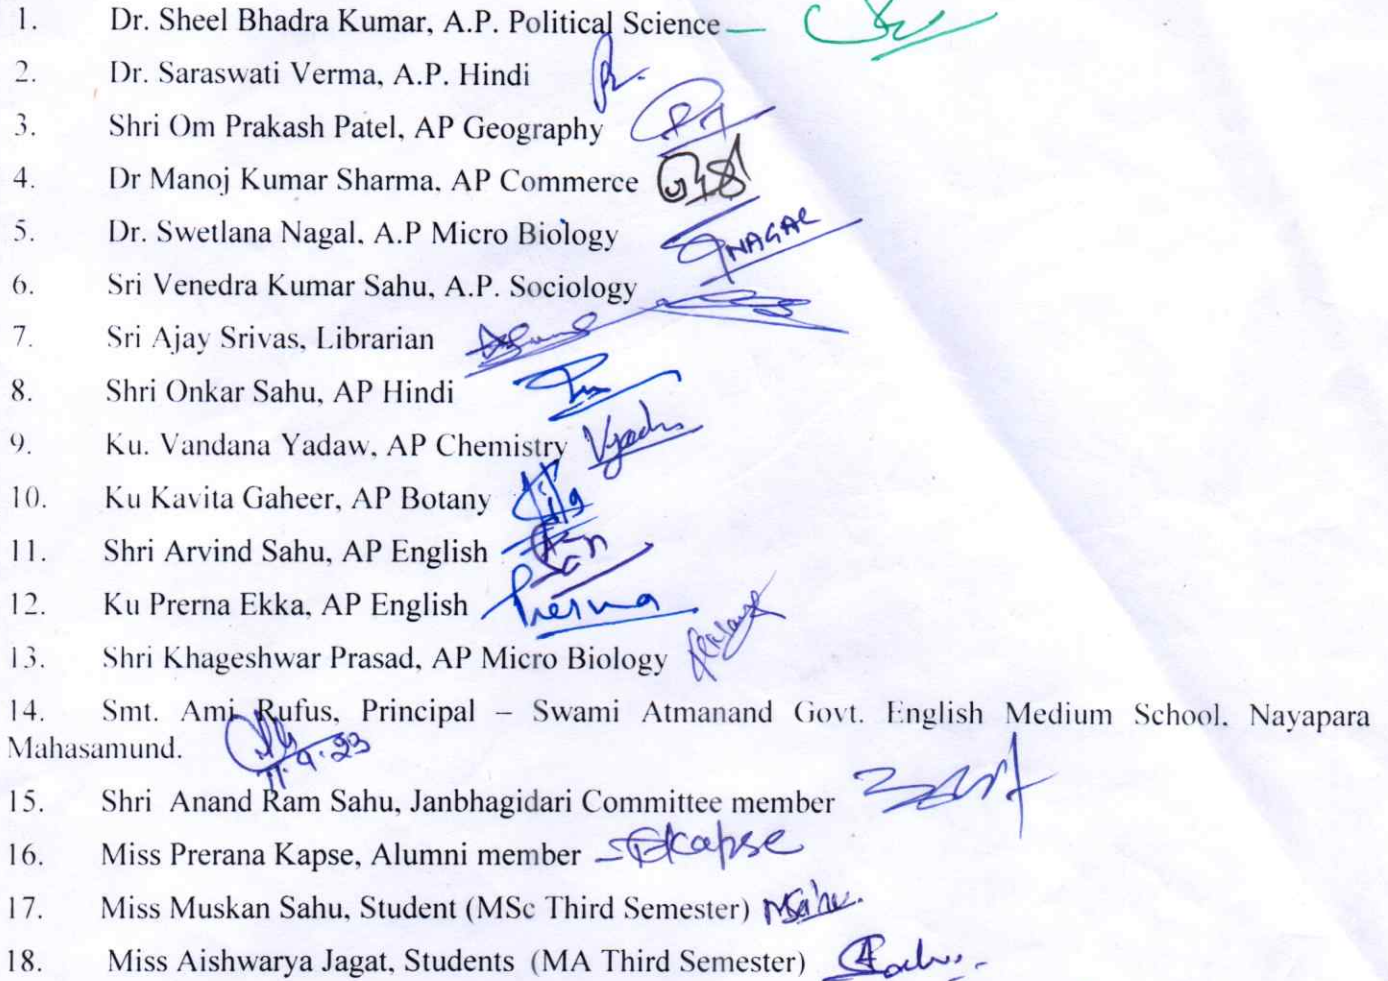 1. Dr. Sheel Bhadra Kumar, A.P. Political Science
2. Dr. Saraswati Verma, A.P. Hindi
3. Shri Om Prakash Patel, AP Geography
4. Dr Manoj Kumar Sharma. AP Commerce
5. Dr. Swetlana Nagal. A.P Micro Biology NAGAL
6. Sri Venedra Kumar Sahu, A.P. Sociology
7. Sri Ajay Srivas, Librarian
8. Shri Onkar Sahu, AP Hindi
9. Ku. Vandana Yadaw, AP Chemistry
10. Ku Kavita Gaheer, AP Botany
11. Shri Arvind Sahu, AP English
12. Ku Prerna Ekka, AP English Prerna
13. Shri Khageshwar Prasad, AP Micro Biology
14. Smt. Ami Rufus, Principal – Swami Atmanand Govt. English Medium School. Nayapara
Mahasamund.
11.9.23
15. Shri Anand Ram Sahu, Janbhagidari Committee member
16. Miss Prerana Kapse, Alumni member Kapse
17. Miss Muskan Sahu, Student (MSc Third Semester) MSahu.
18. Miss Aishwarya Jagat, Students (MA Third Semester)